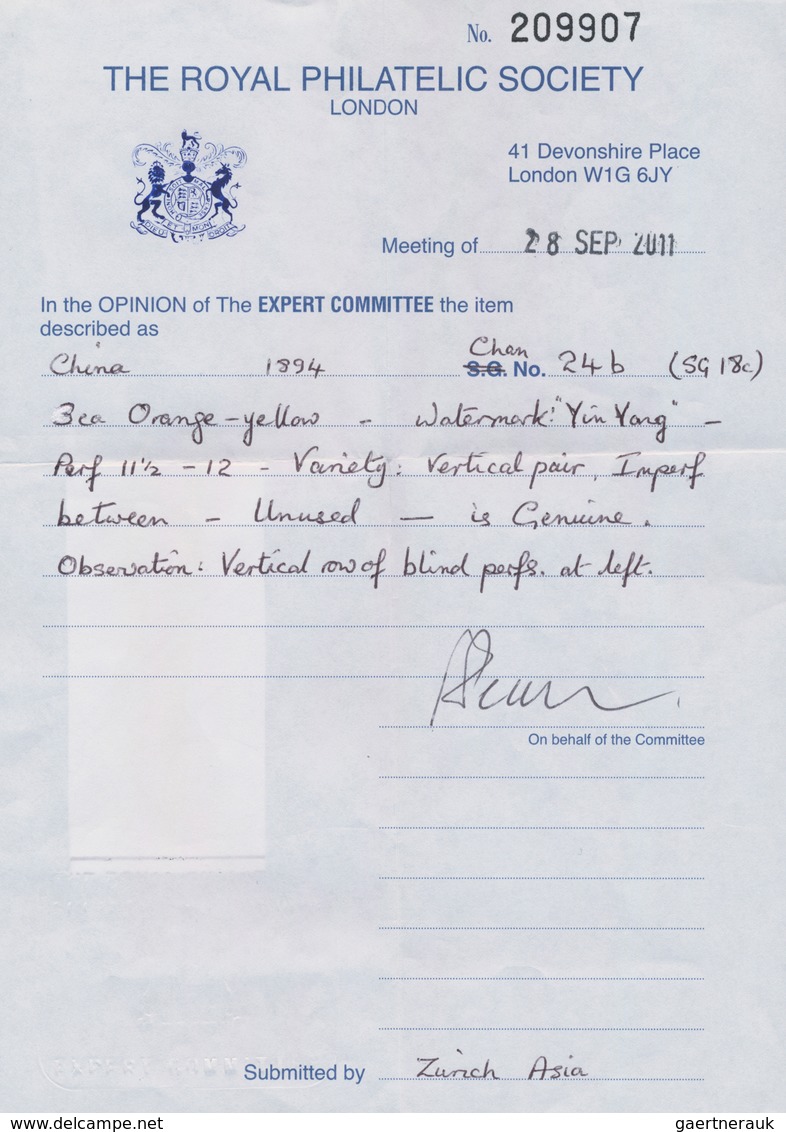 No. 209907
THE ROYAL PHILATELIC SOCIETY
LONDON
41 Devonshire Place
London W1G 6JY
Meeting of 28 SEP 2011
In the OPINION of The EXPERT COMMITTEE the item
described as
China 1894 Chan S.G. No. 24b (SG 18c)
3ca Orange-yellow - Watermark: "Yin Yang" -
Perf 11½ - 12 - Variety: Vertical pair, Imperf
between - Unused - is Genuine.
Observation: Vertical row of blind perfs. at left.
On behalf of the Committee
Submitted by Zürich Asia
www.delcampe.net
gaertnerauk